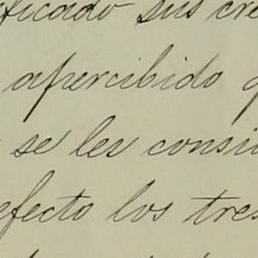 ficado sus cre
apercibido
se les consi
efecto los tres